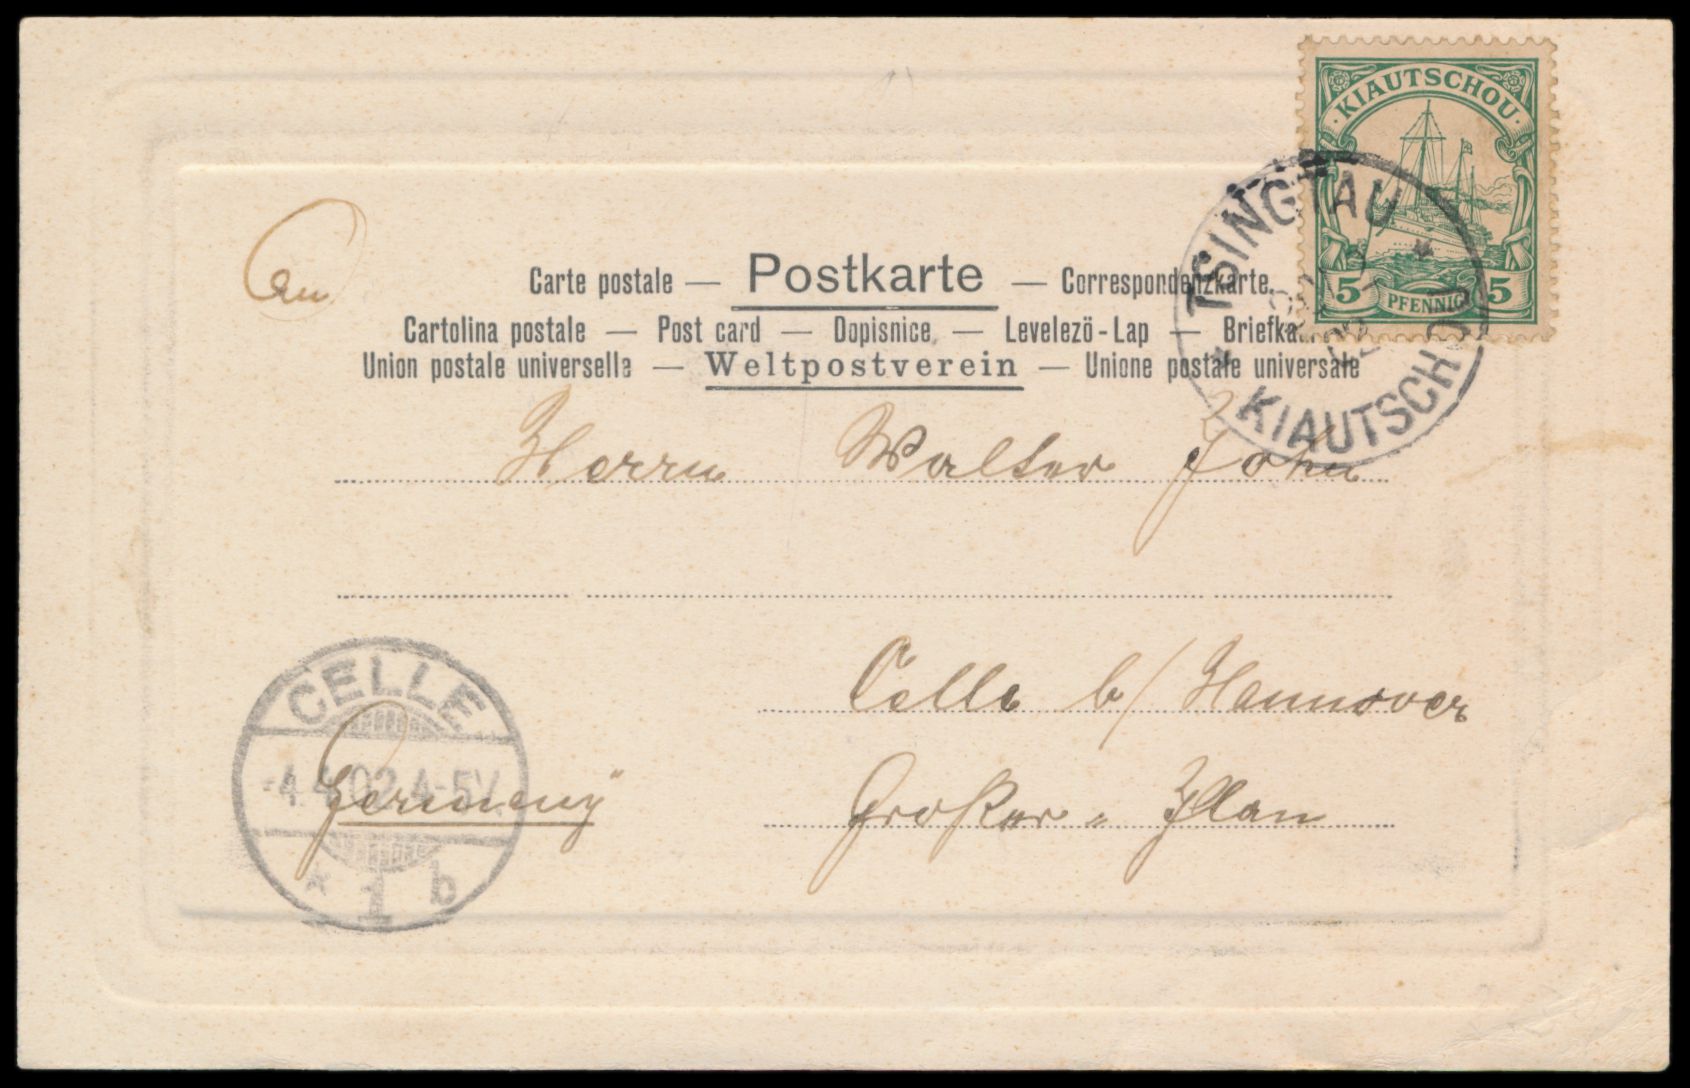 KIAUTSCHOU
5 PFENNIG 5
TSINGTAU
KIAUTSCHOU
An
Carte postale — Postkarte — Correspondenzkarte.
Cartolina postale — Post card — Dopisnice — Levelező-Lap — Briefka
Union postale universelle — Weltpostverein — Unione postale universale
Herrn Walter John
Celle b/Hannover
Großer-Plan
Germany
CELLE
-4.4.02.4-5V.
* 1 b